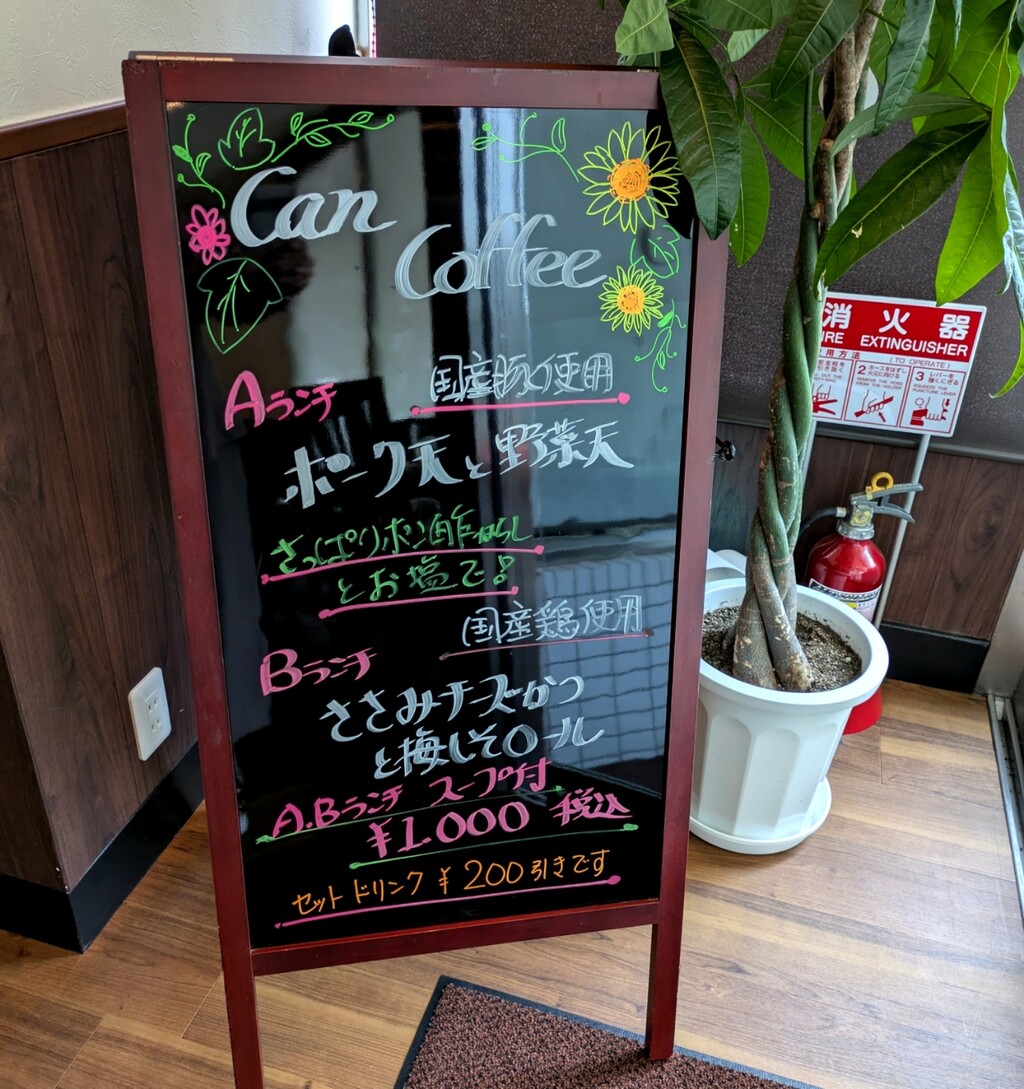 Can
Coffee
Aランチ
国産豚使用
ポーク天と野菜天
さっぱりポン酢おろし
とお塩で!
国産鶏使用
Bランチ
ささみチーズかつ
と梅しそロール
A.Bランチ スープ付
¥1.000 税込
セットドリンク ¥200引きです
消火器
FIRE EXTINGUISHER
用方法 (TO OPERATE)
2 ホースをはずし火元に向ける
REMOVE THE HOSE FROM THE HOLDER
3 レバーを強くにぎる